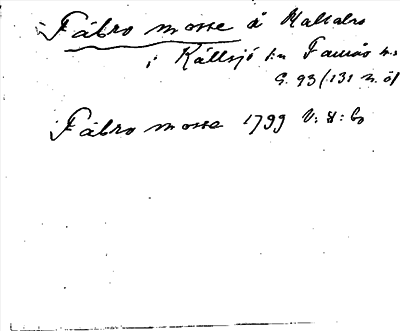 Fábro mosse å Kallabro
i Källsjö sn Faurås hd
G. 93 (131 n. ö)
Fábro mosse 1799 V: 8: 60